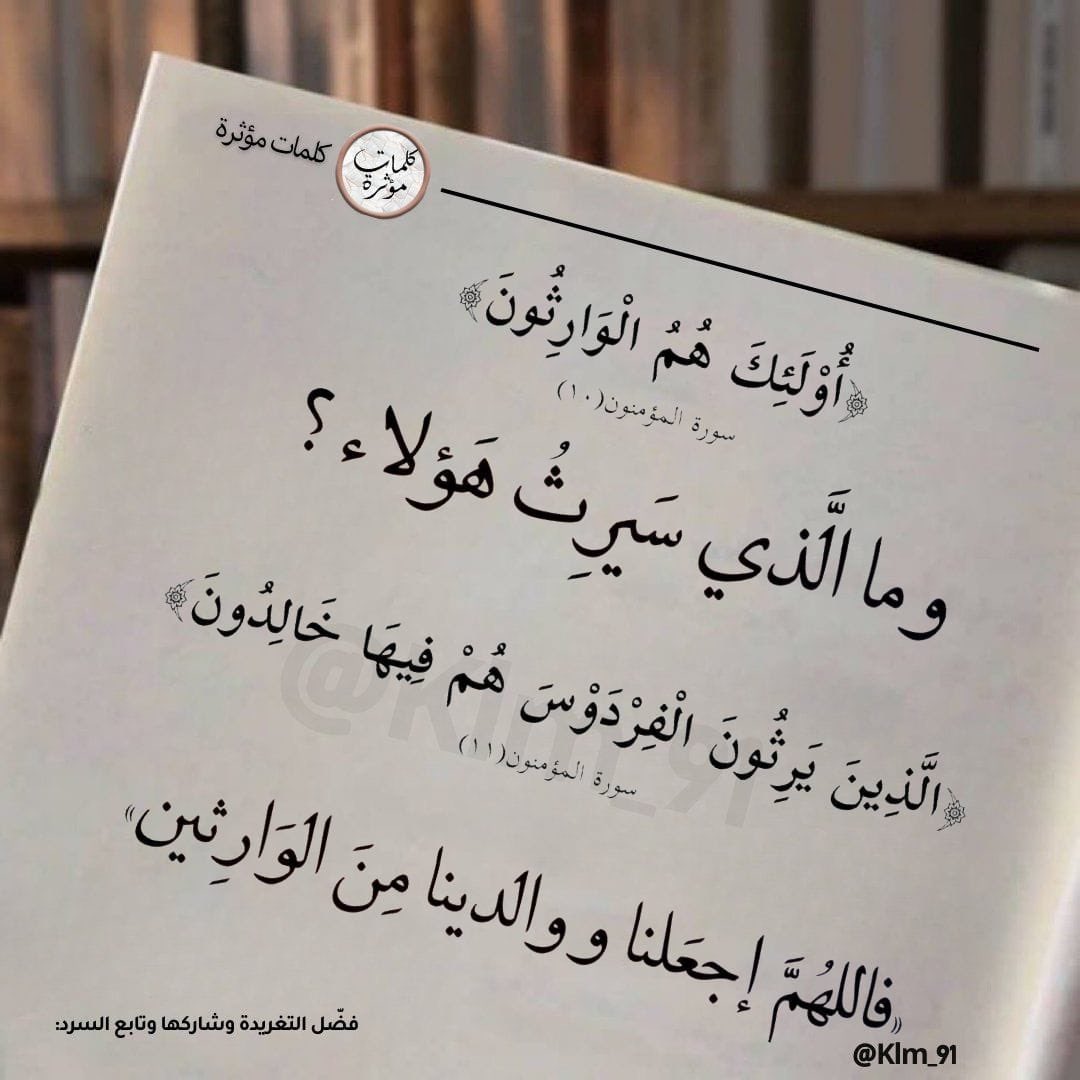 كلمات مؤثرة
كلمات
مؤثرة
﴿أُوْلَئِكَ هُمُ الْوَارِثُونَ﴾
سورة المؤمنون(١٠)
وما الَّذي سَيرِثُ هَؤلاء ؟
﴿الَّذِينَ يَرِثُونَ الْفِرْدَوْسَ هُمْ فِيهَا خَالِدُونَ﴾
سورة المؤمنون(١١)
@Klm_91
«فاللهُمَّ إجعَلنا و والدينا مِنَ الوَارِثين»
فضّل التغريدة وشاركها وتابع السرد:
@Klm_91